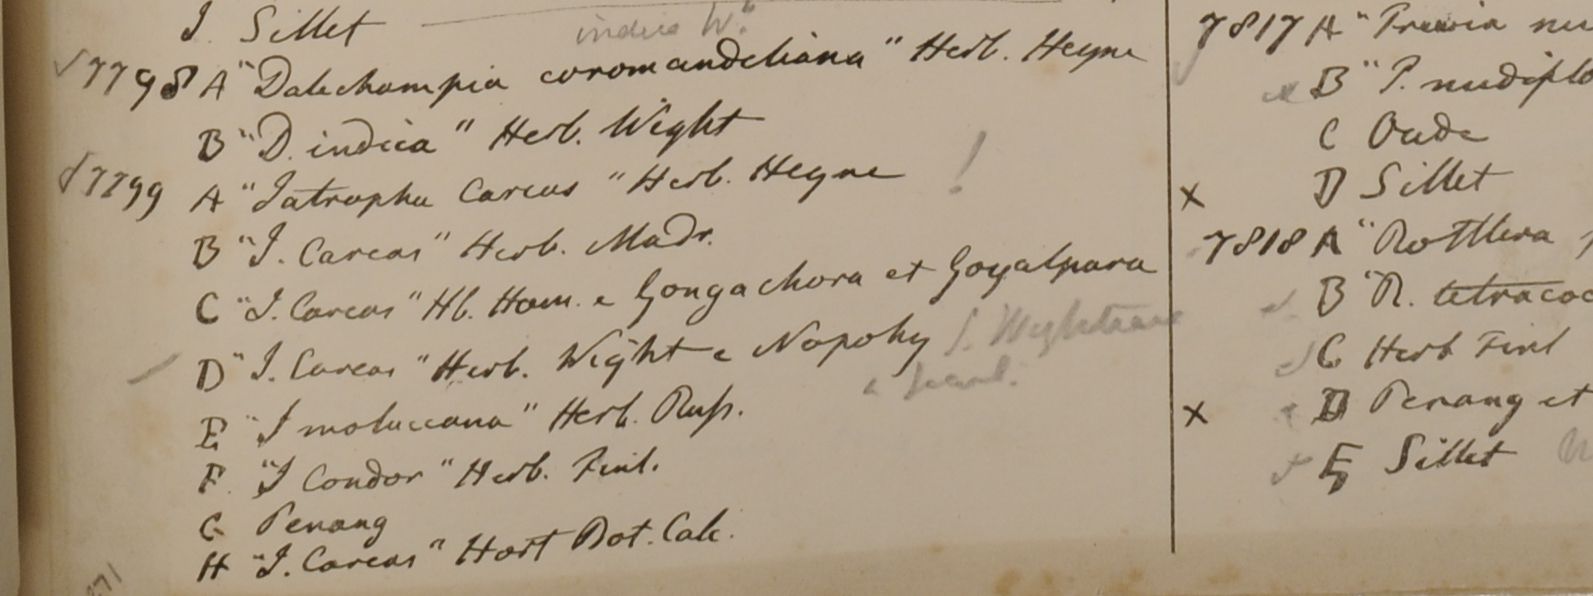 J. Sillet
indica W.
7798 A "Dalechampia coromandeliana" Herb. Heyne
B "D. indica" Herb. Wight
7799 A "Jatropha Curcas" Herb. Heyne !
B "J. Curcas" Herb. Madr.
C "J. Curcas" Hb. Ham. e Gongachora et Goyalpara
D "J. Curcas" Herb. Wight e Nopoky J. Wightiana
E "J moluccana" Herb. Russ.
F. "J Condor" Herb. Finl.
G Penang
H "J. Curcas" Hort Bot. Calc.
7817 A "Trewia nu
B "T. nudiflo
C Oude
x D Sillet
7818 A "Rottlera
B "R. tetracoc
C Herb Finl
x D Penang et
E Sillet